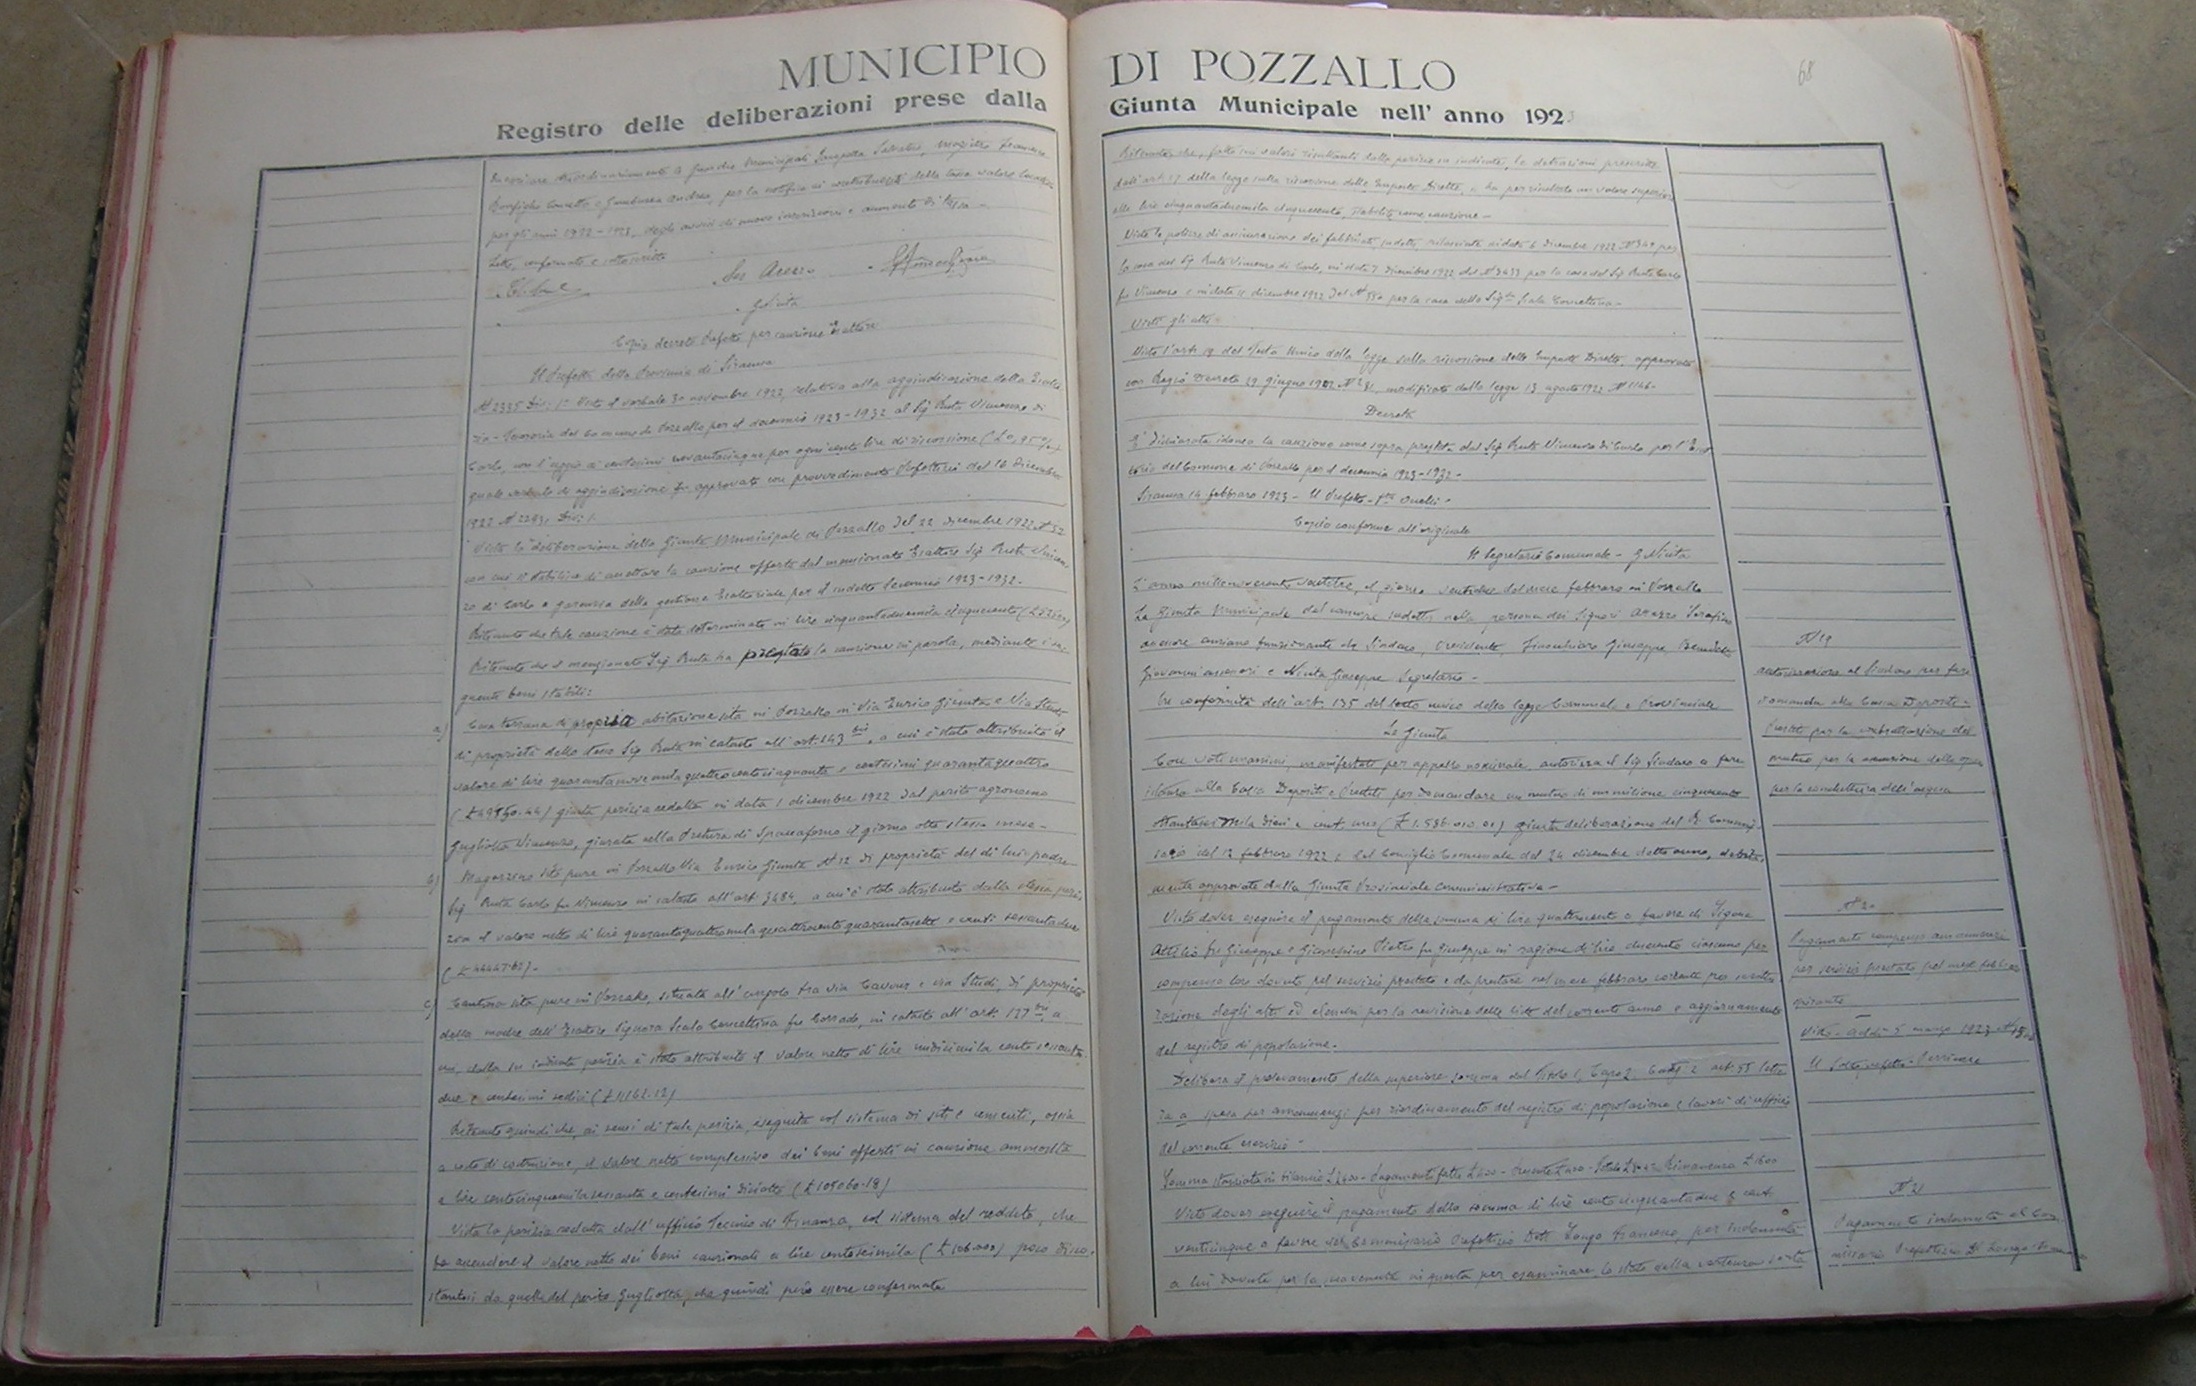 MUNICIPIO DI POZZALLO
Registro delle deliberazioni prese dalla Giunta Municipale nell' anno 192
68
Incaricare straordinariamente le Guardie Municipali
per gli anni 1922-1923, degli avvisi di nuove iscrizioni e aumento di tassa -
Letto, confermato e sottoscritto
G. Nivita
Copia decreto Prefetto per cauzione Esattore
Il Prefetto della Provincia di Siracusa
N 2325 Div: 1ª Visto il verbale 30 novembre 1922, relativo alla aggiudicazione della Esatto
ria-Tesoreria del Comune di Pozzallo per il decennio 1923-1932 al Sig Ruta Vincenzo di
Carlo, con l'aggio di centesimi novantacinque per ogni cento lire di riscossione (£ 0,95 %
quale verbale di aggiudicazione fu approvato con provvedimento Prefettizio del 16 dicembre
1922 N 2293, Div: 1.
Vista la deliberazione della Giunta Municipale di Pozzallo del 22 dicembre 1922 N 32
con cui si stabiliva di accettare la cauzione offerta dal menzionato Esattore Sig Ruta Vincen
zo di Carlo a garanzia della gestione Esattoriale per il sudetto decennio 1923-1932.
Ritenuto che tale cauzione è stata determinata in lire cinquantaduemila cinquecento (£ 52500)
Ritenuto che il menzionato Sig Ruta ha prestato la cauzione in parola, mediante i se
guenti beni stabili:
a) Casa terrana di propria abitazione sita in Pozzallo in Via Enrico Giunta e Via Studi
di proprietà dello stesso Sig Ruta in catasto all'art. 143 bis, a cui è stato attribuito il
valore di lire quarantanovemila quattrocentocinquanta e centesimi quarantaquattro
(£ 49450.44) giusta perizia redatta in data 1 dicembre 1922 dal perito agronomo
Gugliotta Vincenzo, giurata nella Pretura di Spaccaforno il giorno otto stesso mese -
b) Magazzeno sito pure in Pozzallo Via Enrico Giunta N 12 di proprietà del di lui padre
Sig Ruta Carlo fu Vincenzo in catasto all'art. 3484, a cui è stato attribuito dalla stessa peri
zia il valore netto di lire quarantaquattromila quattrocento quarantasette e centi sessantadue
(£ 44447.62) -
c) sita pure in Pozzallo, situata all'angolo tra via Cavour e via Studi, di proprietà
della madre dell'Esattore Signora Scala Concettina fu Corrado, in catasto all'art. 177 bis a
cui, dalla su indicata perizia è stato attribuito il valore netto di lire undicimila cento sessanta
due e centesimi dodici (£ 11162.12)
Ritenuto quindi che, ai sensi di tale perizia, eseguita col sistema di siti e cementi, ossia
a costo di costruzione, il valore netto complessivo dei beni offerti in cauzione ammonta
a lire centocinquemila sessanta e centesimi diciotto (£ 105060.18)
Vista la perizia redatta dall'ufficio Tecnico di Finanza, col sistema del reddito, che
fa ascendere il valore netto dei beni cauzionati a lire centoseimila (£ 106.000) poco disco-
stantesi da quella del perito Gugliotta, che quindi può essere confermata
Ritenuto che, fatte sui valori risultanti dalla perizia su indicata, le detrazioni prescritte
dall'art. 17 della legge sulla riscossione delle Imposte Dirette, si ha per risultato un valore superiore
alle lire cinquantaduemila cinquecento, stabilite come cauzione -
Viste le polizze di assicurazione dei fabbricati sudetti, rilasciate in data 6 dicembre 1922 per
la casa del Sig Ruta Vincenzo di Carlo, in data 7 dicembre 1922 del N 3433 per la casa del Sig Ruta Carlo
fu Vincenzo e in data 11 dicembre 1922 del N per la casa della Sigra Scala Concettina -
Visti gli atti -
Visto l'art. 19 del Testo Unico della legge sulla riscossione delle Imposte Dirette, approvato
con Regio Decreto 29 giugno 1902 N 281, modificato dalla legge 13 agosto 1922 N 1146 -
Decreta
E' dichiarata idonea la cauzione come sopra prestata dal Sig Ruta Vincenzo di Carlo per l'Esat
toria del Comune di Pozzallo per il decennio 1923-1932 -
Siracusa 14 febbraro 1923 - Il Prefetto
Copia conforme all'originale
Il Segretario Comunale - G Nivita
L'anno millenovecento ventitre, il giorno del mese febbraro in Pozzallo
La Giunta Municipale del comune sudetto nella persona dei Signori Arezzo Serafino
assessore anziano funzionante da Sindaco, Presidente, Finocchiaro Giuseppe
Giovanni assessori e Nivita Giuseppe Segretario -
In conformità dell'art. 135 del testo unico della legge Comunale e Provinciale
La Giunta
Con voti unanimi, manifestati per appello nominale, autorizza il Sig Sindaco a fare
istanza alla Cassa Depositi e Prestiti per domandare un mutuo di un milione cinquecento
ottantasei mila dieci e cent. uno (£ 1.586.010.01) giusta deliberazione del R Commis
sario del 12 febbraro 1922 e del Consiglio Comunale del 24 dicembre detto anno, debita
mente approvate dalla Giunta Provinciale amministrativa -
Visto dover eseguire il pagamento della somma di lire quattrocento a favore di Sigona
Attilio fu Giuseppe e Pietro fu Giuseppe in ragione di lire duecento ciascuno per
compenso loro dovuto pel servizio prestato e da prestare nel mese febbraro corrente
degli atti ed elenchi per la revisione delle liste del corrente anno e aggiornamento
del registro di popolazione -
Delibera il prelevamento della superiore somma dal Titolo 1, Capo 2, Categ: 2 art 55 lette
ra a spesa per amanuensi per riordinamento del registro di popolazione e lavori di ufficio
del corrente esercizio -
Somma stanziata in bilancio £ 2400 - Pagamenti fatti £ 400 - Presente £ 400 - Totale £ 800 - Rimanenza £ 1600
Visto dover eseguire il pagamento della somma di lire cento cinquantadue e cent.
venticinque a favore del Commissario Prefettizio Dott Longo Francesco, per indennità
a lui dovute per la sua venuta in questa per esaminare lo stato della vertenza sorta
N 19
autorizzazione al Sindaco per fare
domanda alla Cassa Depositi e
Prestiti per la contrattazione del
mutuo per la
per la conduttura dell'acqua
N 20
Pagamento compenso amanuensi
per servizio prestato pel mese febbraro
Visto - Addì 5 marzo 1923
Il Sottoprefetto
N 21
Pagamento indennità al Com
missario Prefettizio Dr Longo